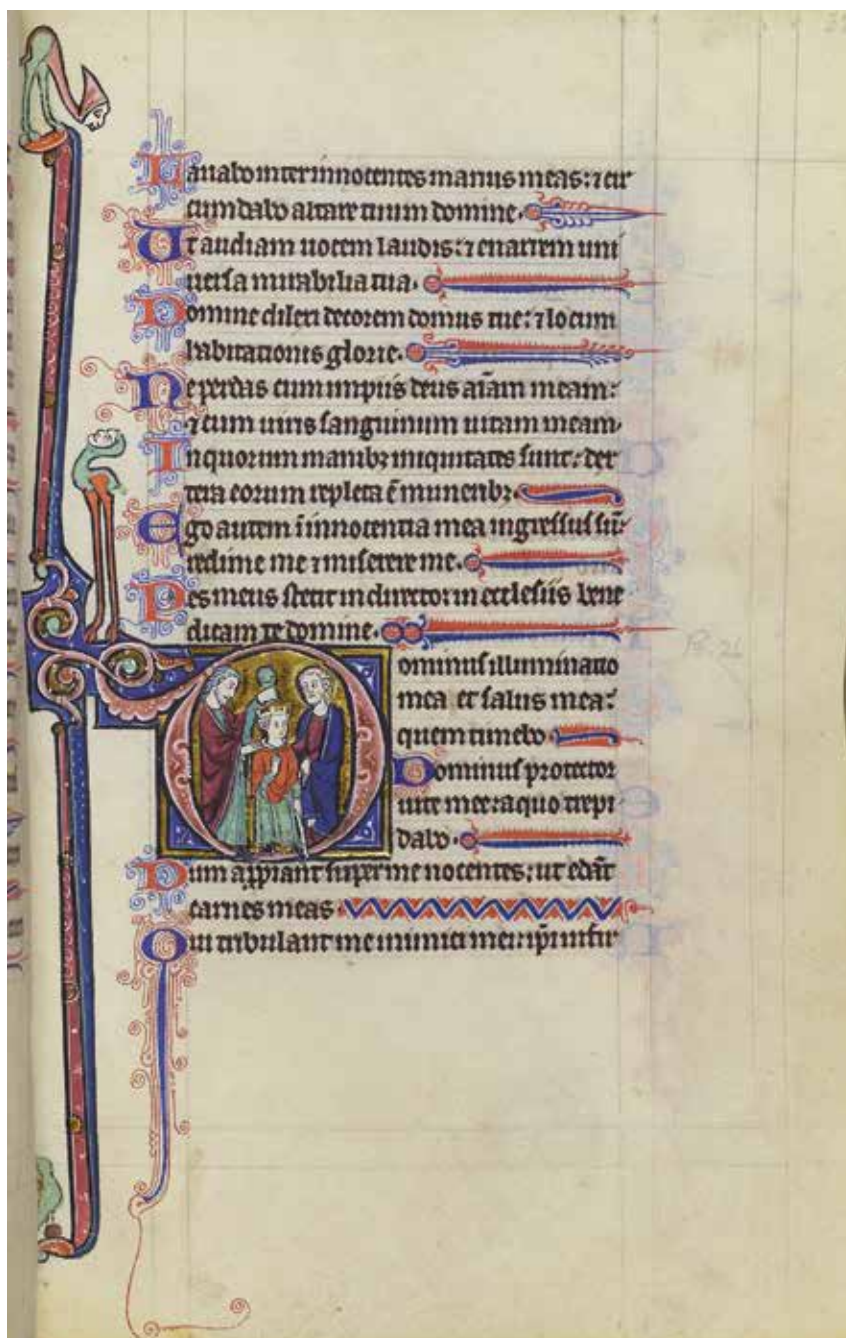 Lauabo inter innocentes manus meas: ⁊ cir
cumdabo altare tuum domine.
Ut audiam uocem laudis: ⁊ enarrem uni
uersa mirabilia tua.
Domine dilexi decorem domus tue: ⁊ locum
habitationis glorie.
Ne perdas cum impiis deus aīam meam:
⁊ cum uiris sanguinum uitam meam.
In quorum manibꝫ iniquitates sunt: dex
tera eorum repleta ē muneribꝫ.
Ego autem ī innocentia mea ingressus sū:
redime me ⁊ miserere me.
Pes meus stetit in directo: in ecclesiis bene
dicam te domine.
Dominus illuminatio
mea et salus mea:
quem timebo
Dominus protector
uite mee: a quo trepi
dabo.
Dum appiant super me nocentes: ut edāt
carnes meas.
Qui tribulant me inimici mei: ipī infir